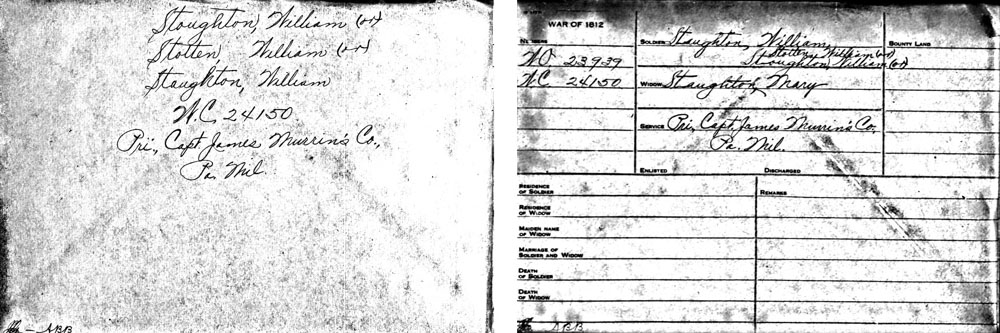 Stoughton, William (or)
Stotten, William (or)
Staughton, William
W.C. 24150
Pri., Capt. James Murrin's Co.,
Pa. Mil.
ABB
WAR OF 1812
NUMBERS
W.O. 23939
W.C. 24150
SOLDIER Staughton, William,
Stotten, William (or)
Stoughton, William (or)
WIDOW Staughton, Mary
SERVICE Pri., Capt. James Murrin's Co.,
Pa. Mil.
ENLISTED DISCHARGED
BOUNTY LAND
RESIDENCE
OF SOLDIER
RESIDENCE
OF WIDOW
MAIDEN NAME
OF WIDOW
MARRIAGE OF
SOLDIER AND WIDOW
DEATH
OF SOLDIER
DEATH
OF WIDOW
REMARKS
ABB